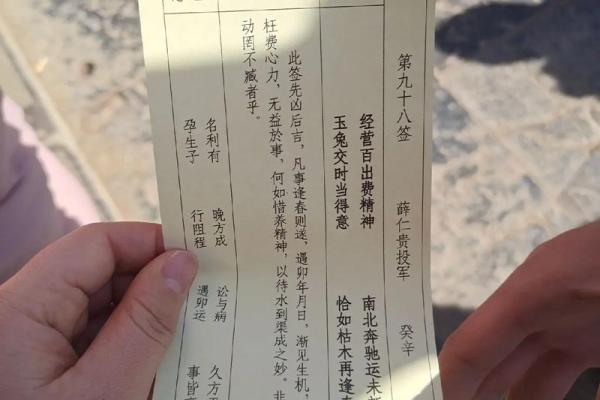 第九十八签 薛仁贵投军 癸辛
经营百出费精神 南北奔驰运未
玉兔交时当得意 恰如枯木再逢
此签先凶后吉，凡事逢春则遂，遇卯年月日，渐见生机，
枉费心力，无益於事，何如惜养精神，以待水到渠成之妙。非
动罔不臧者乎。
名利有 晚方成 讼与病 久方
孕生子 行阻程 遇卯运 事皆